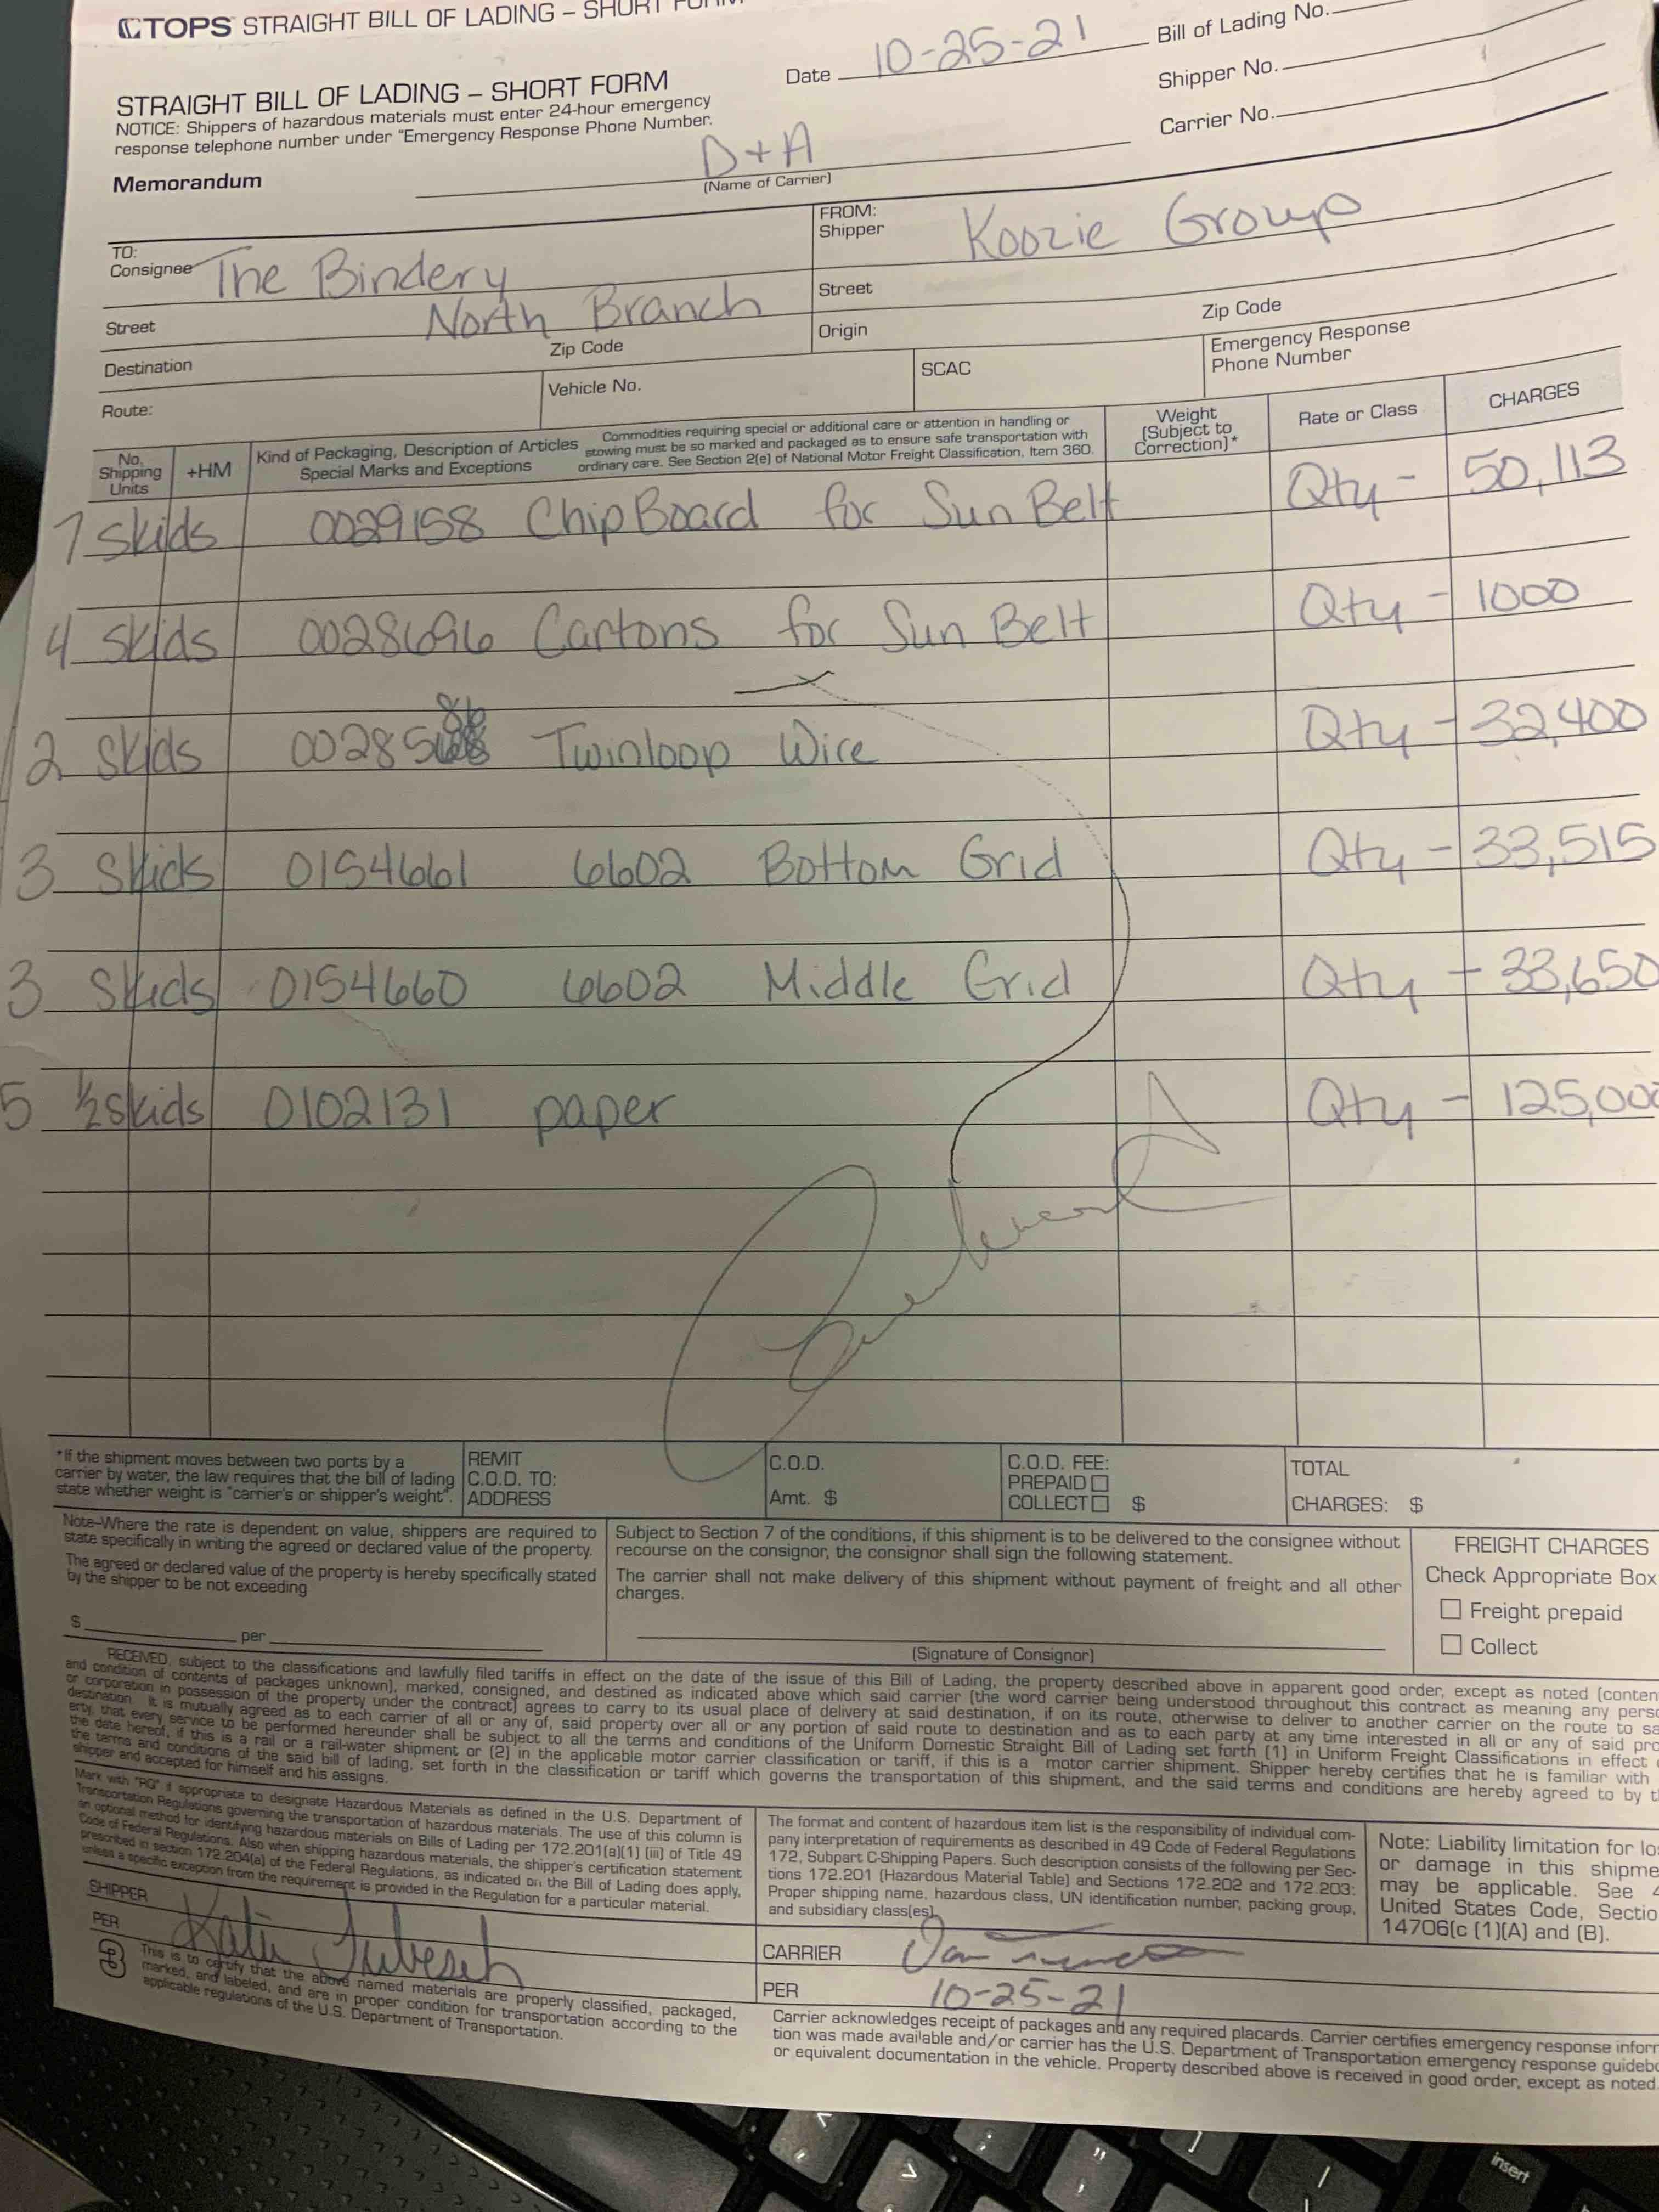 TOPS STRAIGHT BILL OF LADING – SHORT FORM
STRAIGHT BILL OF LADING – SHORT FORM
NOTICE: Shippers of hazardous materials must enter 24-hour emergency
response telephone number under "Emergency Response Phone Number.
Memorandum
Date 10-25-21
Bill of Lading No.
Shipper No.
Carrier No.
D+A
(Name of Carrier)
TO:
Consignee The Bindery
FROM:
Shipper Koozie Group
Street North Branch
Street
Destination Zip Code
Origin Zip Code
Route:
Vehicle No.
SCAC
Emergency Response
Phone Number
No.
Shipping
Units
+HM
Kind of Packaging, Description of Articles
Special Marks and Exceptions
Commodities requiring special or additional care or attention in handling or
stowing must be so marked and packaged as to ensure safe transportation with
ordinary care. See Section 2(e) of National Motor Freight Classification, Item 360.
Weight
(Subject to
Correction)*
Rate or Class
CHARGES
7 skids 0029158 ChipBoard for Sun Belt Qty - 50,113
4 skids 0028696 Cartons for Sun Belt Qty - 1000
2 skids 00285 86 Twinloop Wire Qty - 32,400
3 skids 0154661 6602 Bottom Grid Qty - 33,515
3 skids 0154660 6602 Middle Grid Qty - 33,650
5 ½ skids 0102131 paper Qty - 125,000
*If the shipment moves between two ports by a
carrier by water, the law requires that the bill of lading
state whether weight is "carrier's or shipper's weight".
REMIT
C.O.D. TO:
ADDRESS
C.O.D.
Amt. $
C.O.D. FEE:
PREPAID
COLLECT $
TOTAL
CHARGES: $
Note–Where the rate is dependent on value, shippers are required to
state specifically in writing the agreed or declared value of the property.
The agreed or declared value of the property is hereby specifically stated
by the shipper to be not exceeding
$ per
Subject to Section 7 of the conditions, if this shipment is to be delivered to the consignee without
recourse on the consignor, the consignor shall sign the following statement.
The carrier shall not make delivery of this shipment without payment of freight and all other
charges.
(Signature of Consignor)
FREIGHT CHARGES
Check Appropriate Box
Freight prepaid
Collect
RECEIVED, subject to the classifications and lawfully filed tariffs in effect on the date of the issue of this Bill of Lading, the property described above in apparent good order, except as noted (conten
and condition of contents of packages unknown), marked, consigned, and destined as indicated above which said carrier (the word carrier being understood throughout this contract as meaning any perso
or corporation in possession of the property under the contract) agrees to carry to its usual place of delivery at said destination, if on its route, otherwise to deliver to another carrier on the route to sa
destination. It is mutually agreed as to each carrier of all or any of, said property over all or any portion of said route to destination and as to each party at any time interested in all or any of said pro
erty, that every service to be performed hereunder shall be subject to all the terms and conditions of the Uniform Domestic Straight Bill of Lading set forth (1) in Uniform Freight Classifications in effect
the date hereof, if this is a rail or a rail-water shipment or (2) in the applicable motor carrier classification or tariff, if this is a motor carrier shipment. Shipper hereby certifies that he is familiar with
the terms and conditions of the said bill of lading, set forth in the classification or tariff which governs the transportation of this shipment, and the said terms and conditions are hereby agreed to by t
shipper and accepted for himself and his assigns.
Mark with "RQ" if appropriate to designate Hazardous Materials as defined in the U.S. Department of
Transportation Regulations governing the transportation of hazardous materials. The use of this column is
an optional method for identifying hazardous materials on Bills of Lading per 172.201(a)(1) (iii) of Title 49
Code of Federal Regulations. Also when shipping hazardous materials, the shipper's certification statement
prescribed in section 172.204(a) of the Federal Regulations, as indicated on the Bill of Lading does apply,
unless a specific exception from the requirement is provided in the Regulation for a particular material.
The format and content of hazardous item list is the responsibility of individual com-
pany interpretation of requirements as described in 49 Code of Federal Regulations
172, Subpart C-Shipping Papers. Such description consists of the following per Sec-
tions 172.201 (Hazardous Material Table) and Sections 172.202 and 172.203:
Proper shipping name, hazardous class, UN identification number, packing group,
and subsidiary class(es)
Note: Liability limitation for lo
or damage in this shipme
may be applicable. See 4
United States Code, Sectio
14706(c (1)(A) and (B).
SHIPPER
PER Katie
CARRIER
PER 10-25-21
3
This is to certify that the above named materials are properly classified, packaged,
marked, and labeled, and are in proper condition for transportation according to the
applicable regulations of the U.S. Department of Transportation.
Carrier acknowledges receipt of packages and any required placards. Carrier certifies emergency response inform
tion was made available and/or carrier has the U.S. Department of Transportation emergency response guidebo
or equivalent documentation in the vehicle. Property described above is received in good order, except as noted.
insert